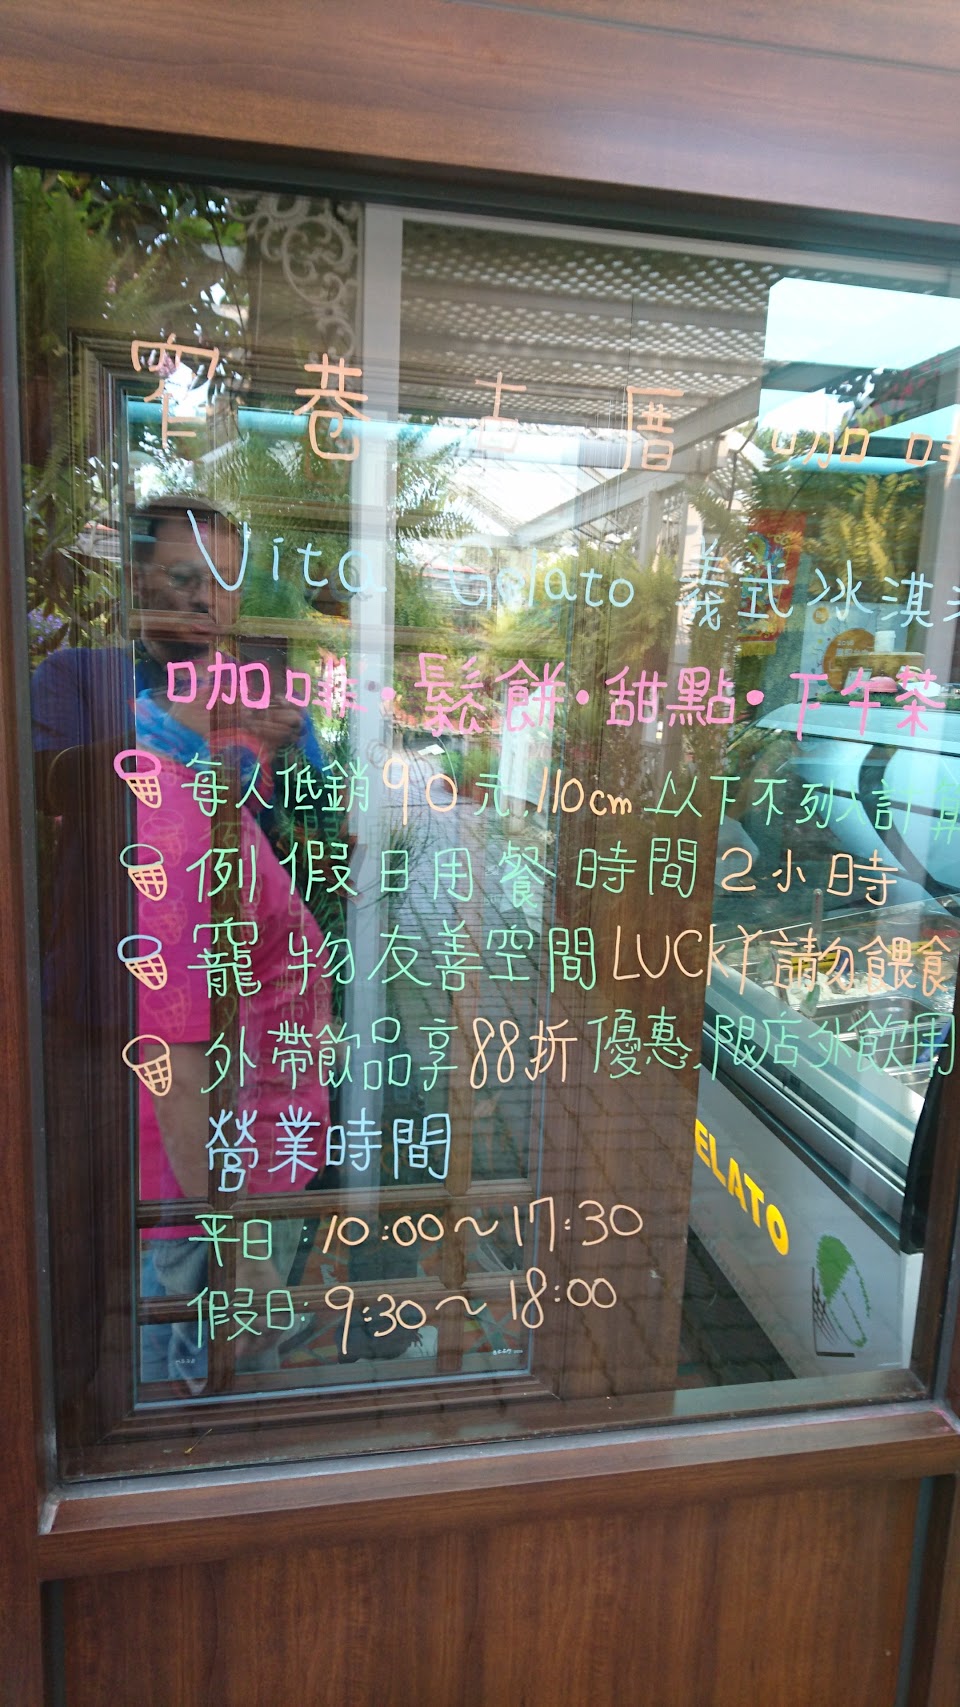 窄巷古厝咖啡
Vita Gelato 義式冰淇
咖啡·鬆餅·甜點·下午茶
每人低銷90元,110cm以下不列入計算
例假日用餐時間2小時
寵物友善空間LUCKY請勿餵食
外帶飲品享88折優惠,限店外飲用
營業時間
平日:10:00~17:30
假日:9:30~18:00
ELATO